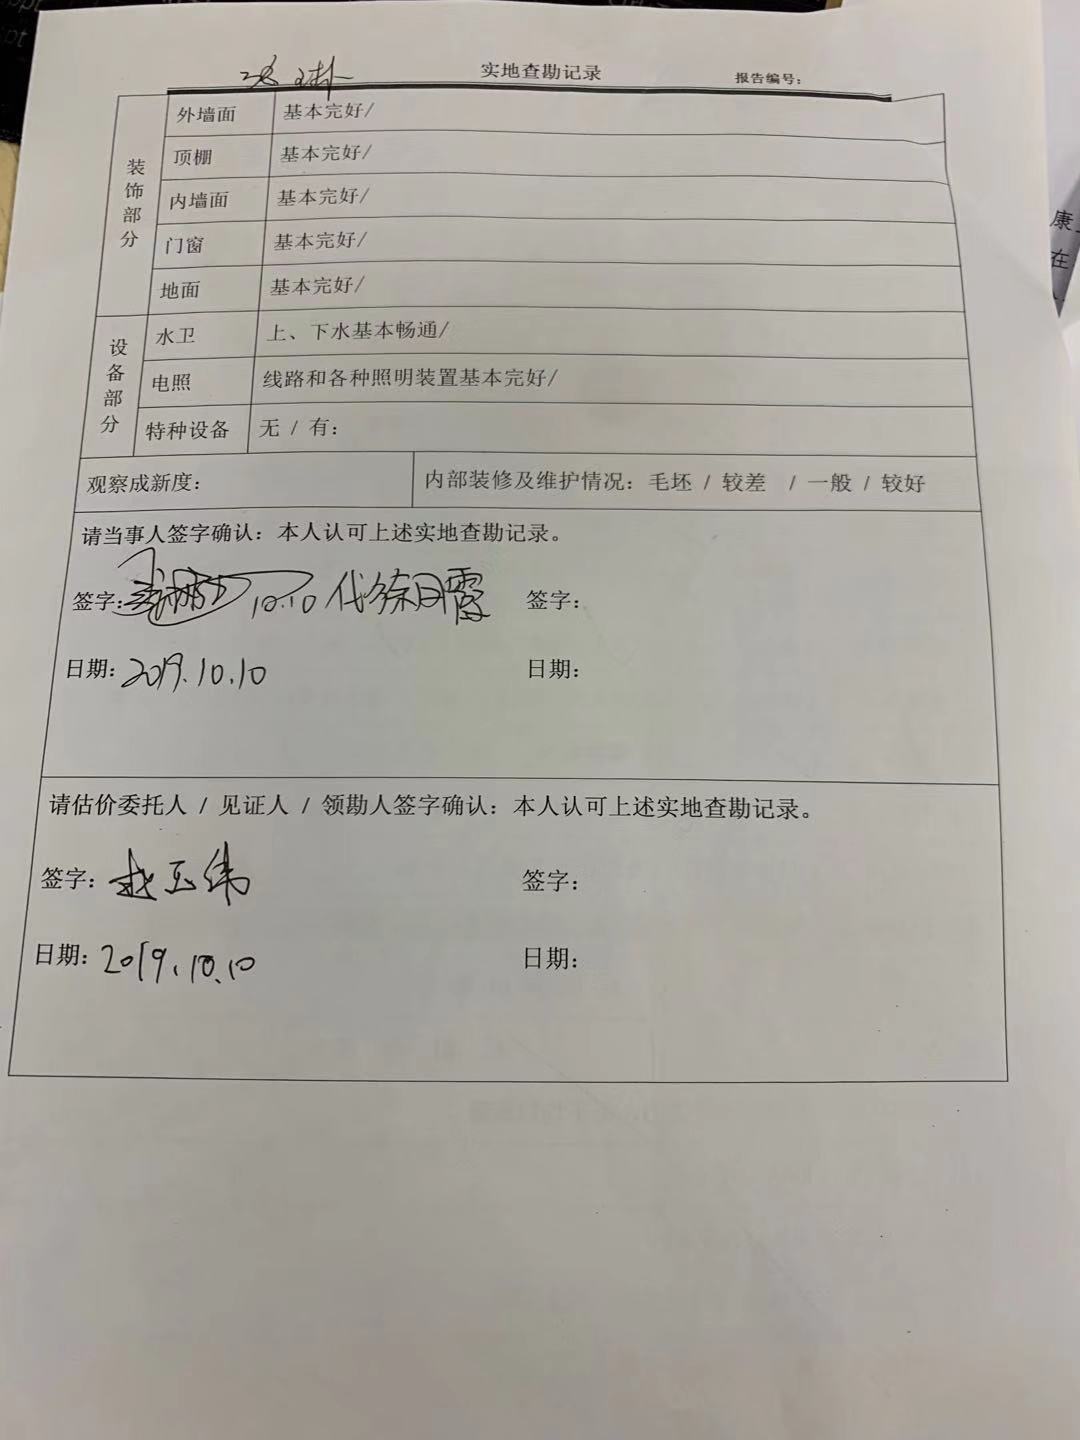 实地查勘记录
报告编号：
装饰部分
外墙面 基本完好/
顶棚 基本完好/
内墙面 基本完好/
门窗 基本完好/
地面 基本完好/
设备部分
水卫 上、下水基本畅通/
电照 线路和各种照明装置基本完好/
特种设备 无 / 有：
观察成新度： 内部装修及维护情况：毛坯 / 较差 / 一般 / 较好
请当事人签字确认：本人认可上述实地查勘记录。
签字： 10.10 代徐月霞 签字：
日期：2019.10.10 日期：
请估价委托人 / 见证人 / 领勘人签字确认：本人认可上述实地查勘记录。
签字：赵玉伟 签字：
日期：2019.10.10 日期：
康
在